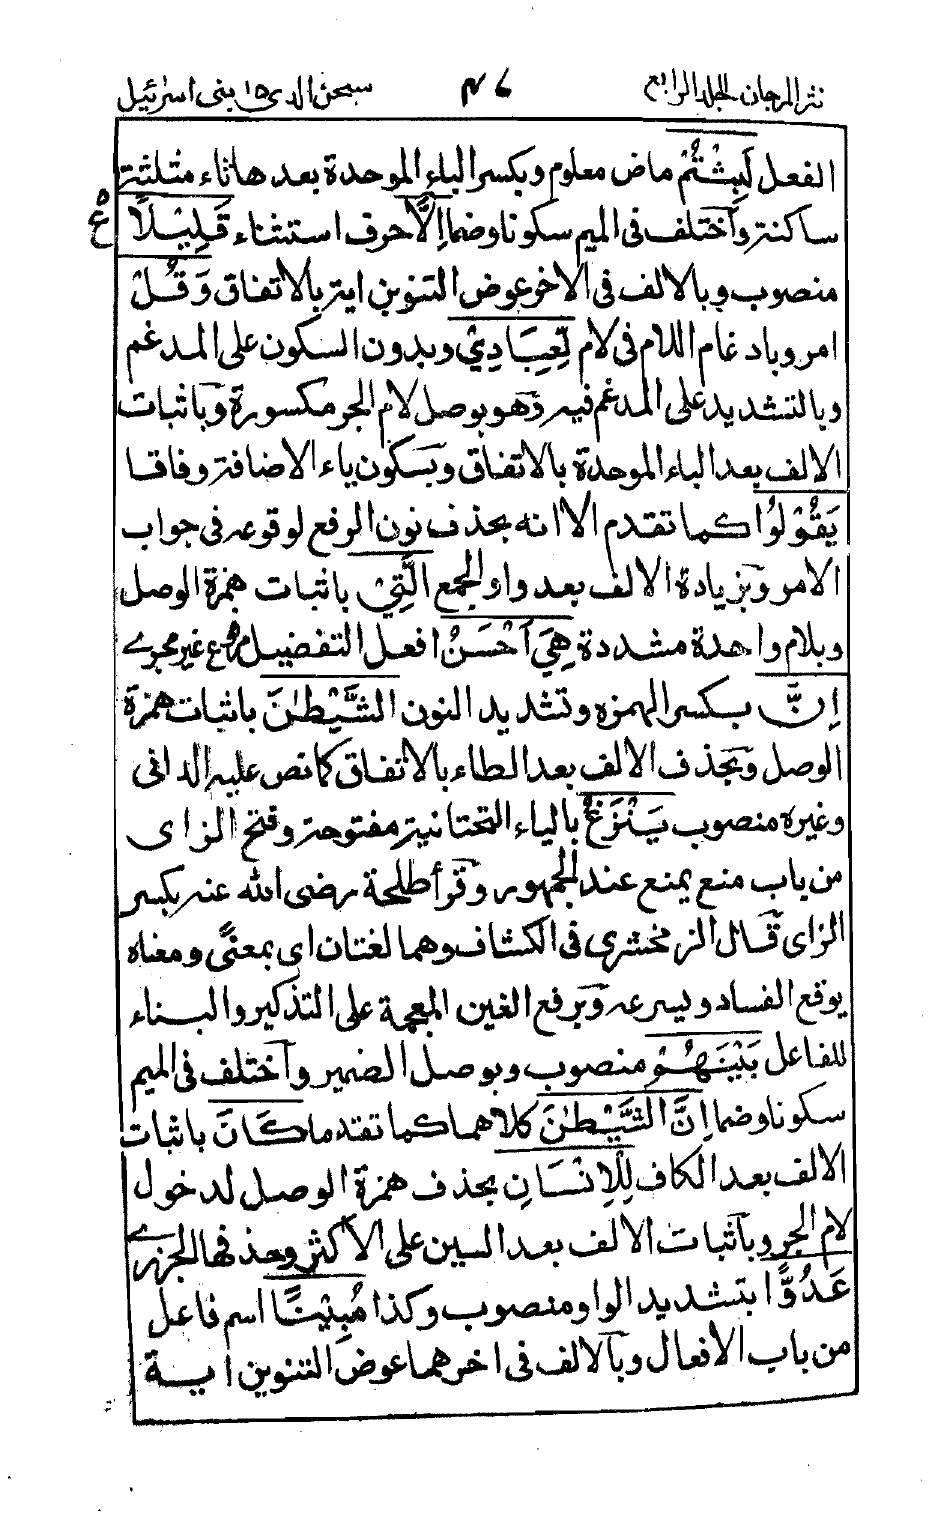 نثر المرجان الجلد الرابع ٤٧ سبحن الذى ١٥ بنى اسرائيل
الفعل لَبِثْتُمْ ماض معلوم وبكسر الباء الموحدة بعدها ثاء مثلثة
ساكنة وآختلف فى الميم سكونا وضما اِلَّا حرف استثناء قَلِيْلًا
منصوب وبالالف فى الاخر عوض التنوين اية بالاتفاق وَقُلْ
امر وباد غام اللام فى لام لِّعِبَادِيْ وبدون السكون على المدغم
وبالتشديد على المدغم فيه وَهو بوصل لام الجر مكسورة وَباثبات
الالف بعد الباء الموحدة بالاتفاق وَبسكون ياء الاضافة وفاقا
يَقُوْلُوْا كما تقدم الا انه بحذف نون الرفع لوقوعه فى جواب
الامر وَبزيادة الالف بعد واو الجمع الَّتِيْ باثبات همزة الوصل
وبلام واحدة مشددة هِيَ اَحْسَنُ افعل التفضيل مرفوع غير مجرے
اِنَّ بكسر الهمزه وتشديد النون الشَّيْطٰنَ باثبات همزة
الوصل وَبحذف الالف بعد الطاء بالاتفاق كما نص عليه الدانى
وغيره منصوب يَنْزَغُ بالياء التحتانية مفتوحة وفتح الزاى
من باب منع يمنع عند الجمهور وَقرأ طلحة رضى الله عنه بكسر
الزاى قَال الزمخشرى فى الكشاف وهما لغتان اى بمعنًى ومعناه
يوقع الفساد ويسرعه وَبرفع الغين المعجمة على التذكير والبناء
للفاعل بَيْنَهُمْ منصوب وبوصل الضمير وآختلف فى الميم
سكونا وضما اِنَّ الشَّيْطٰنَ كلاهما كما تقدما كَانَ باثبات
الالف بعد الكاف لِلْاِنْسَانِ بحذف همزة الوصل لدخول
لام الجر وبآثبات الالف بعد السين على الاكثر وحذفها الجزرے
عَدُوًّا بتشديد الواو منصوب وكذا مُبِيْنًا اسم فاعل
من باب الافعال وبآلالف فى اخرهما عوض التنوين اية
ع